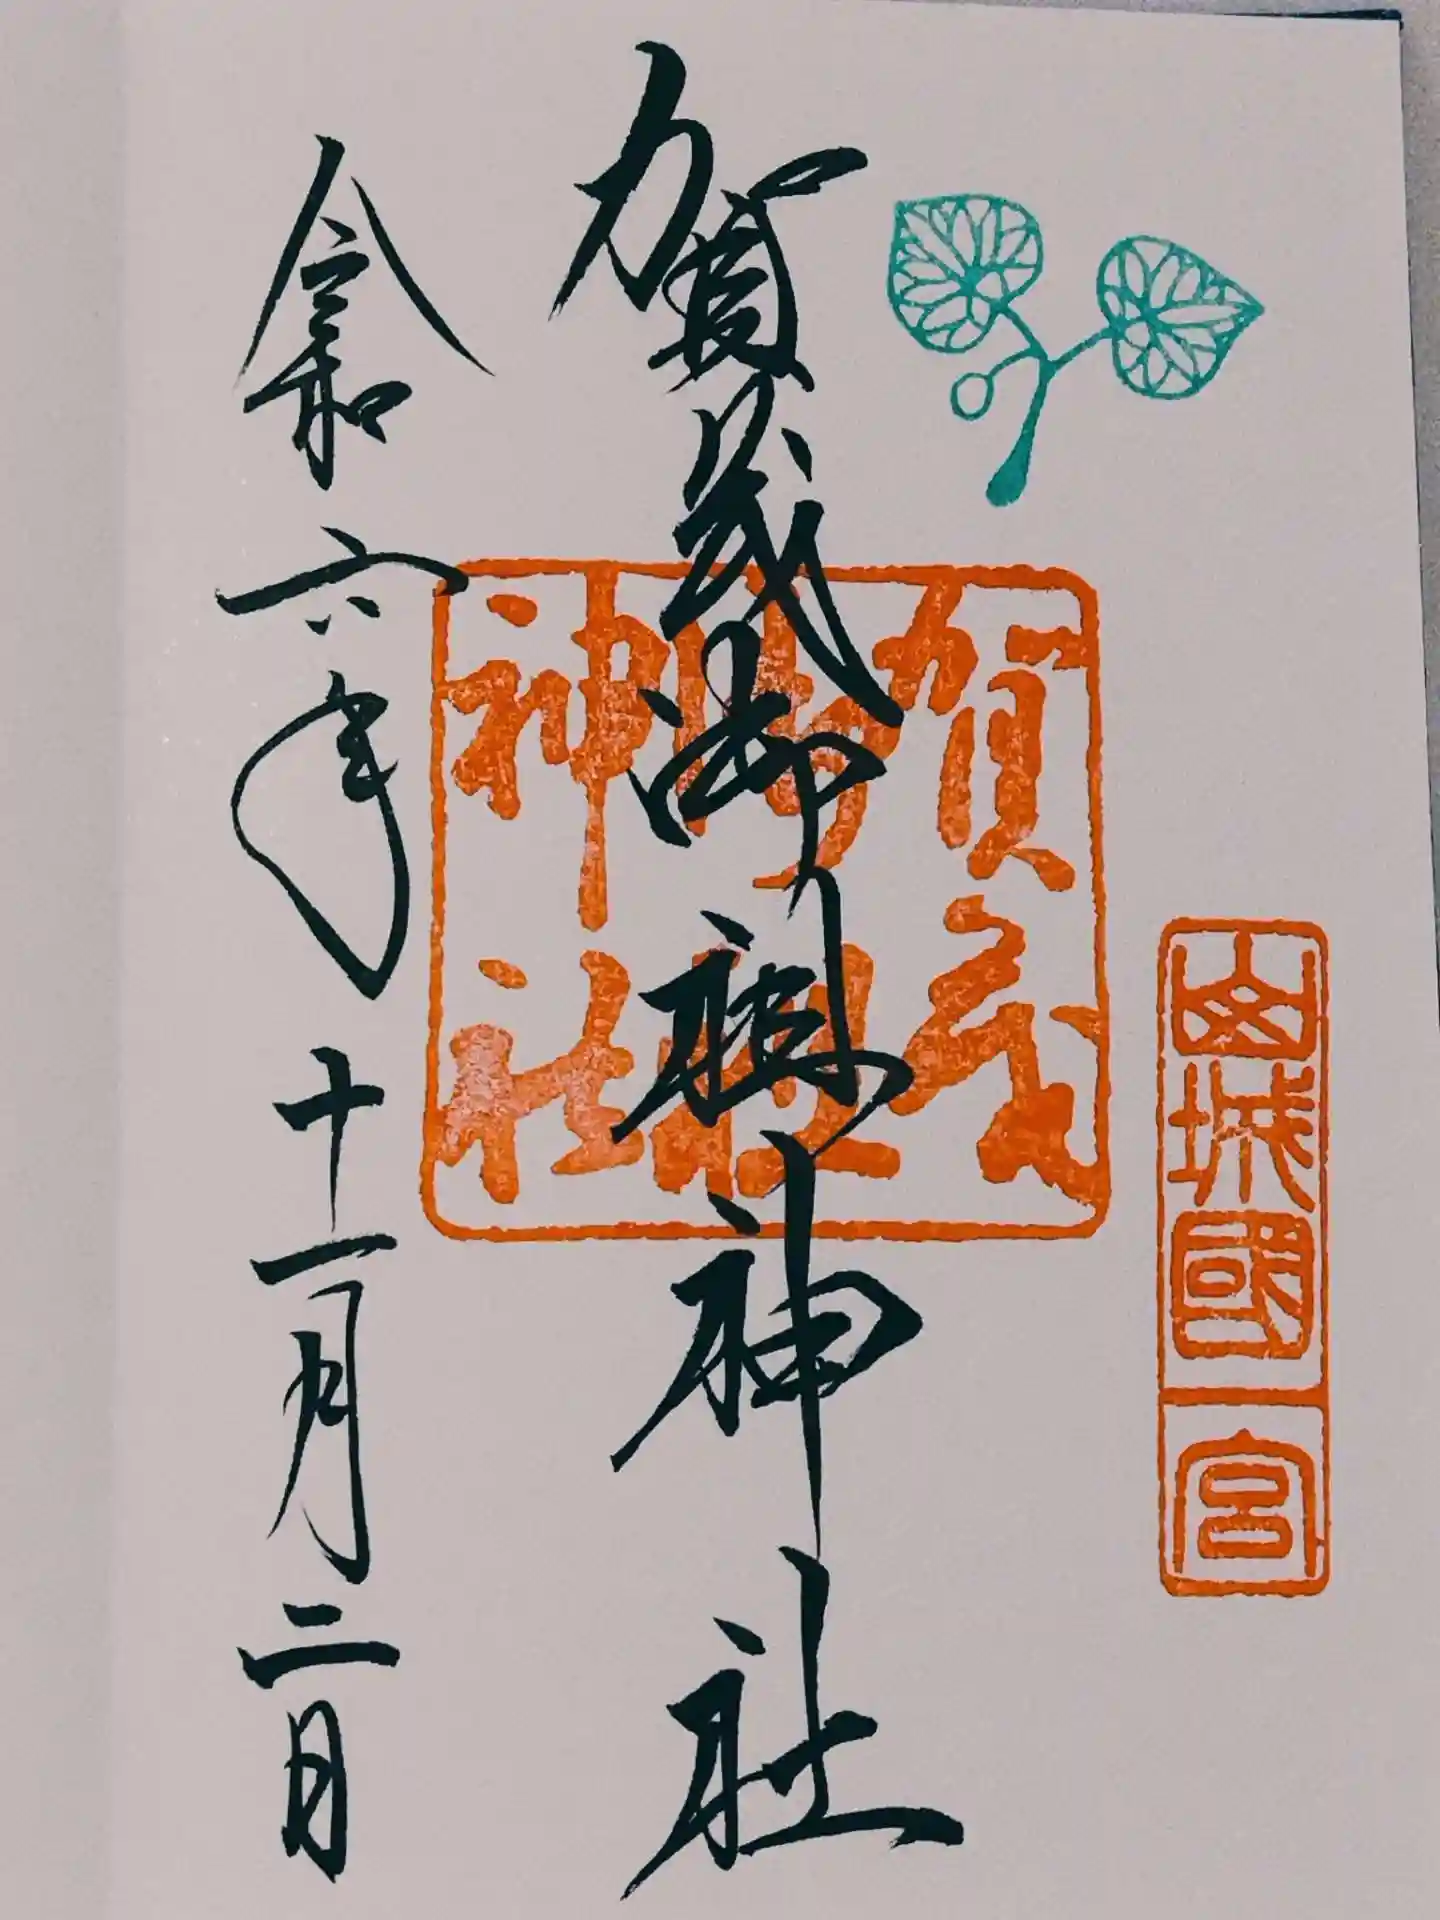 山城國一宮
賀茂御祖神社
賀茂
御祖
神社
令和六年十一月二日